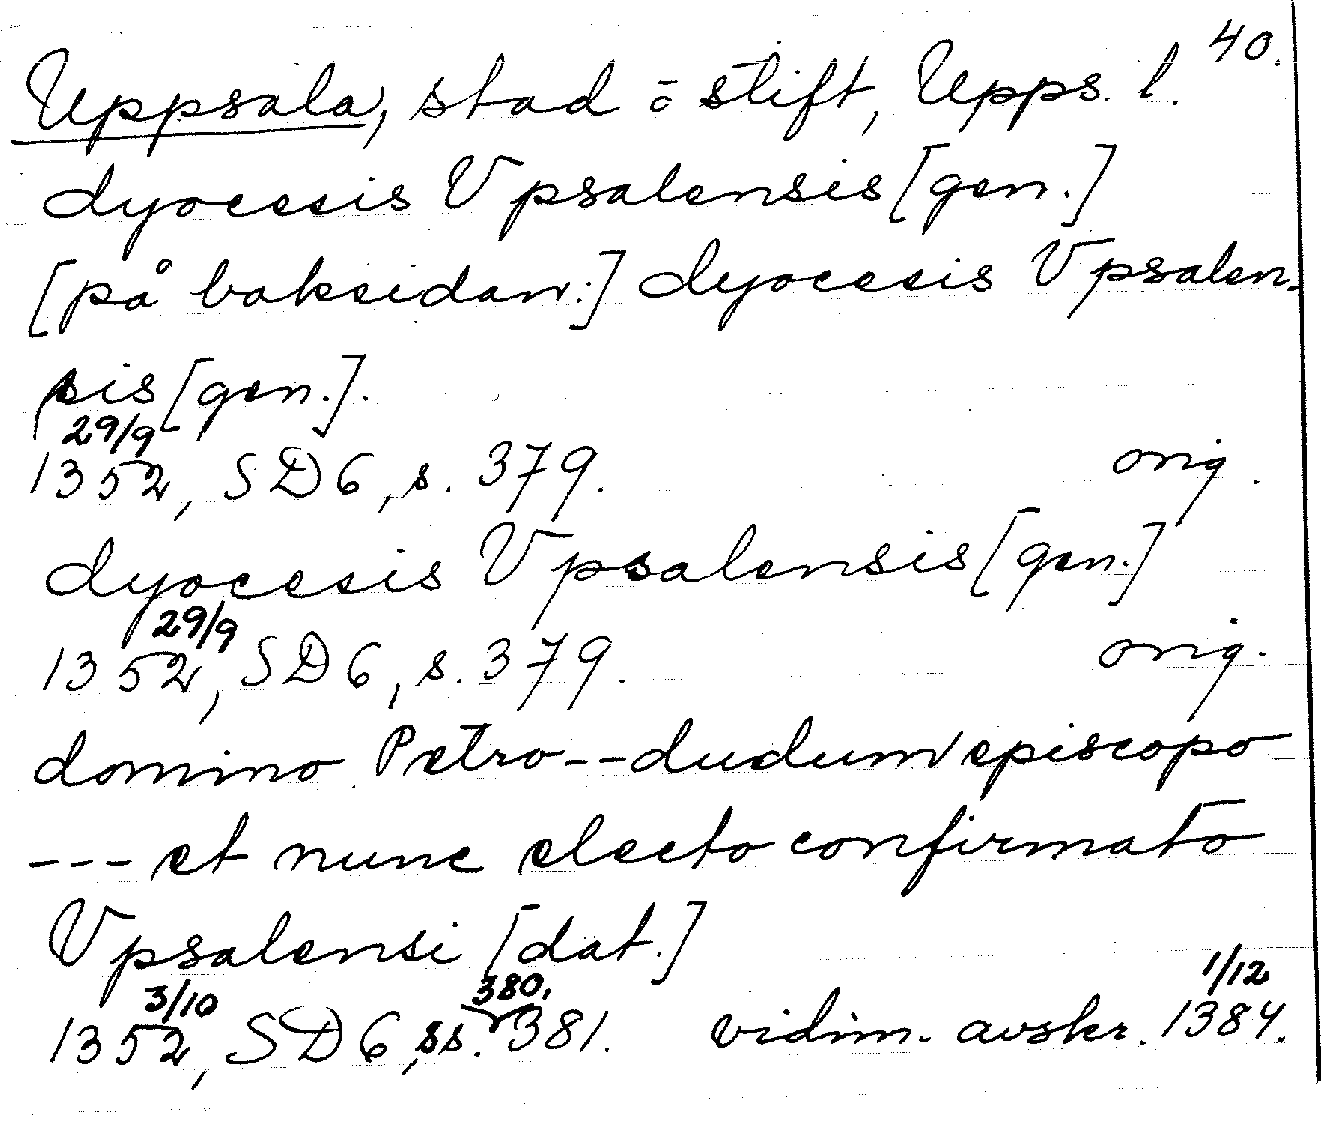 40.
Uppsala, stad o stift, Upps. l.
dyocesis Vpsalensis [gen.]
[på baksidan:] dyocesis Vpsalen-
sis [gen.].
29/9
1352, SD 6, s. 379. orig.
dyocesis Vpsalensis [gen.]
29/9
1352, SD 6, s. 379. orig.
domino Petro -- dudum episcopo
--- et nunc electo confirmato
Vpsalensi [dat.]
3/10 380, 1/12
1352, SD 6, ss. 381. vidim. avskr. 1384.